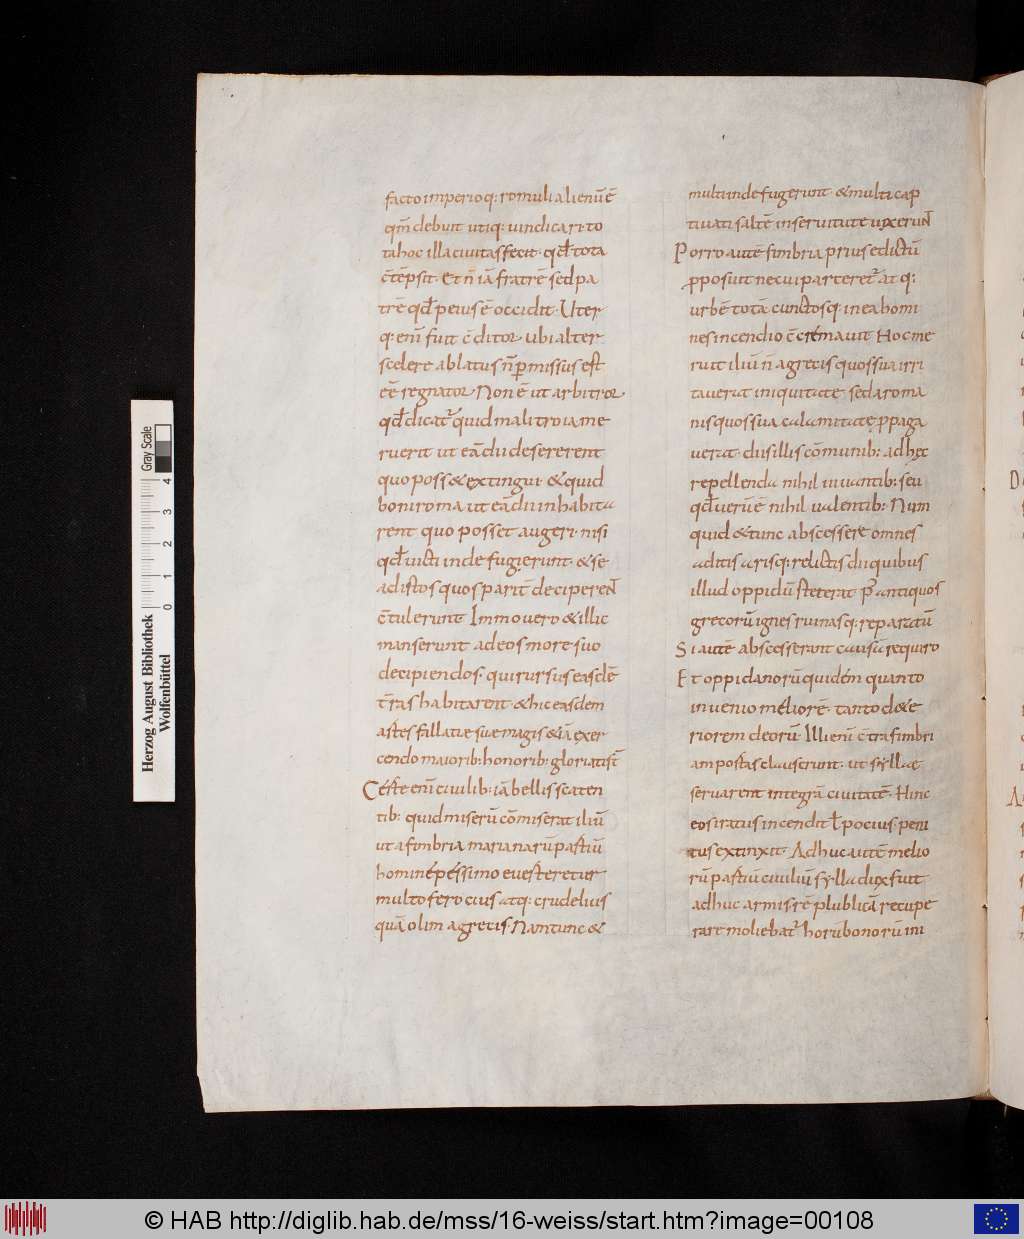 facto imperioq: romuli alienū ē
qm̄ debuit utiq: uindicari to
tahoc illa ciuitas fecit· qd̄ tota
c̄tēpsit· Et n̄ iā fratrē sed pa
trē qd̄ peius ē occidit· Uter
q: eni̅ fuit c̄ditor ubi alter
scelere ablatus n̄ pmissus est
eē regnator Non ē ut arbitror
qd̄ dicat̄ quid mali troia me
ruerit ut eā dii desererent
quo poss& extingui· & quid
boni roma ut eā dii inhabita
rent quo posset augeri· nisi
qd̄ uicti inde fugierunt· & se
ad istos quos parit̄ deciperen̄
c̄tulerunt Immo uero & illic
manserunt ad eos more suo
decipiendos· qui rursus easdē
t̄ras habitarent· & hic easdem
astes fallatiae suae magis &iā exer
cendo maiorib: honorib: gloriatist̄
Certe eni̅ ciuilib· iā bellis scaten
tib: quid miserū cōmiserat iliū
ut a fimbria marianarū pastiū
homine pessimo euesteretur
multo ferocius atq: crudelius
quā olim a grecis Nam tunc &
multi inde fugerunt· & multi cap
tiuati saltē in seruitute uixerun̄
Porro autē fimbria prius edictū
pposuit ne cui parceret̄ at q:
urbē totā cunctosq· in ea homi
nes incendio c̄cremauit Hoc me
ruit iliū n̄ a grecis quos sua irri
tauerat iniquitate sed a roma
nis quos sua calamitate ppaga
uerat· diis illis cōmunib: ad hęc
repellenda nihil iuuantib: seu
qd̄ uerū ē nihil ualentib: Num
quid & tunc abscessere omnes
aditis arisq: relictis dii quibus
illud oppidū steterat P̄ antiquos
grecorū ignes ruinasq: reparatū
Si autē abscesserant causā requiro
Et oppidanorū quidém quanto
inuenio méliorē· tanto d&e
riorem deorū Illi eni̅ c̄tra fimbri
am postas clauserunt· ut syllae
seruarent integrā ciuitatē· Hinc
eos iratus incendit ł pocius peni
tus extinxit· Adhuc autē melio
rū pastiū ciuiliū sylla dux fuit
adhuc armis rē plublicā recupe
rare moliebat̄ horū bonorū ini
Herzog August Bibliothek
Wolfenbüttel
0 1 2 3 4
Gray Scale
© HAB http://diglib.hab.de/mss/16-weiss/start.htm?image=00108